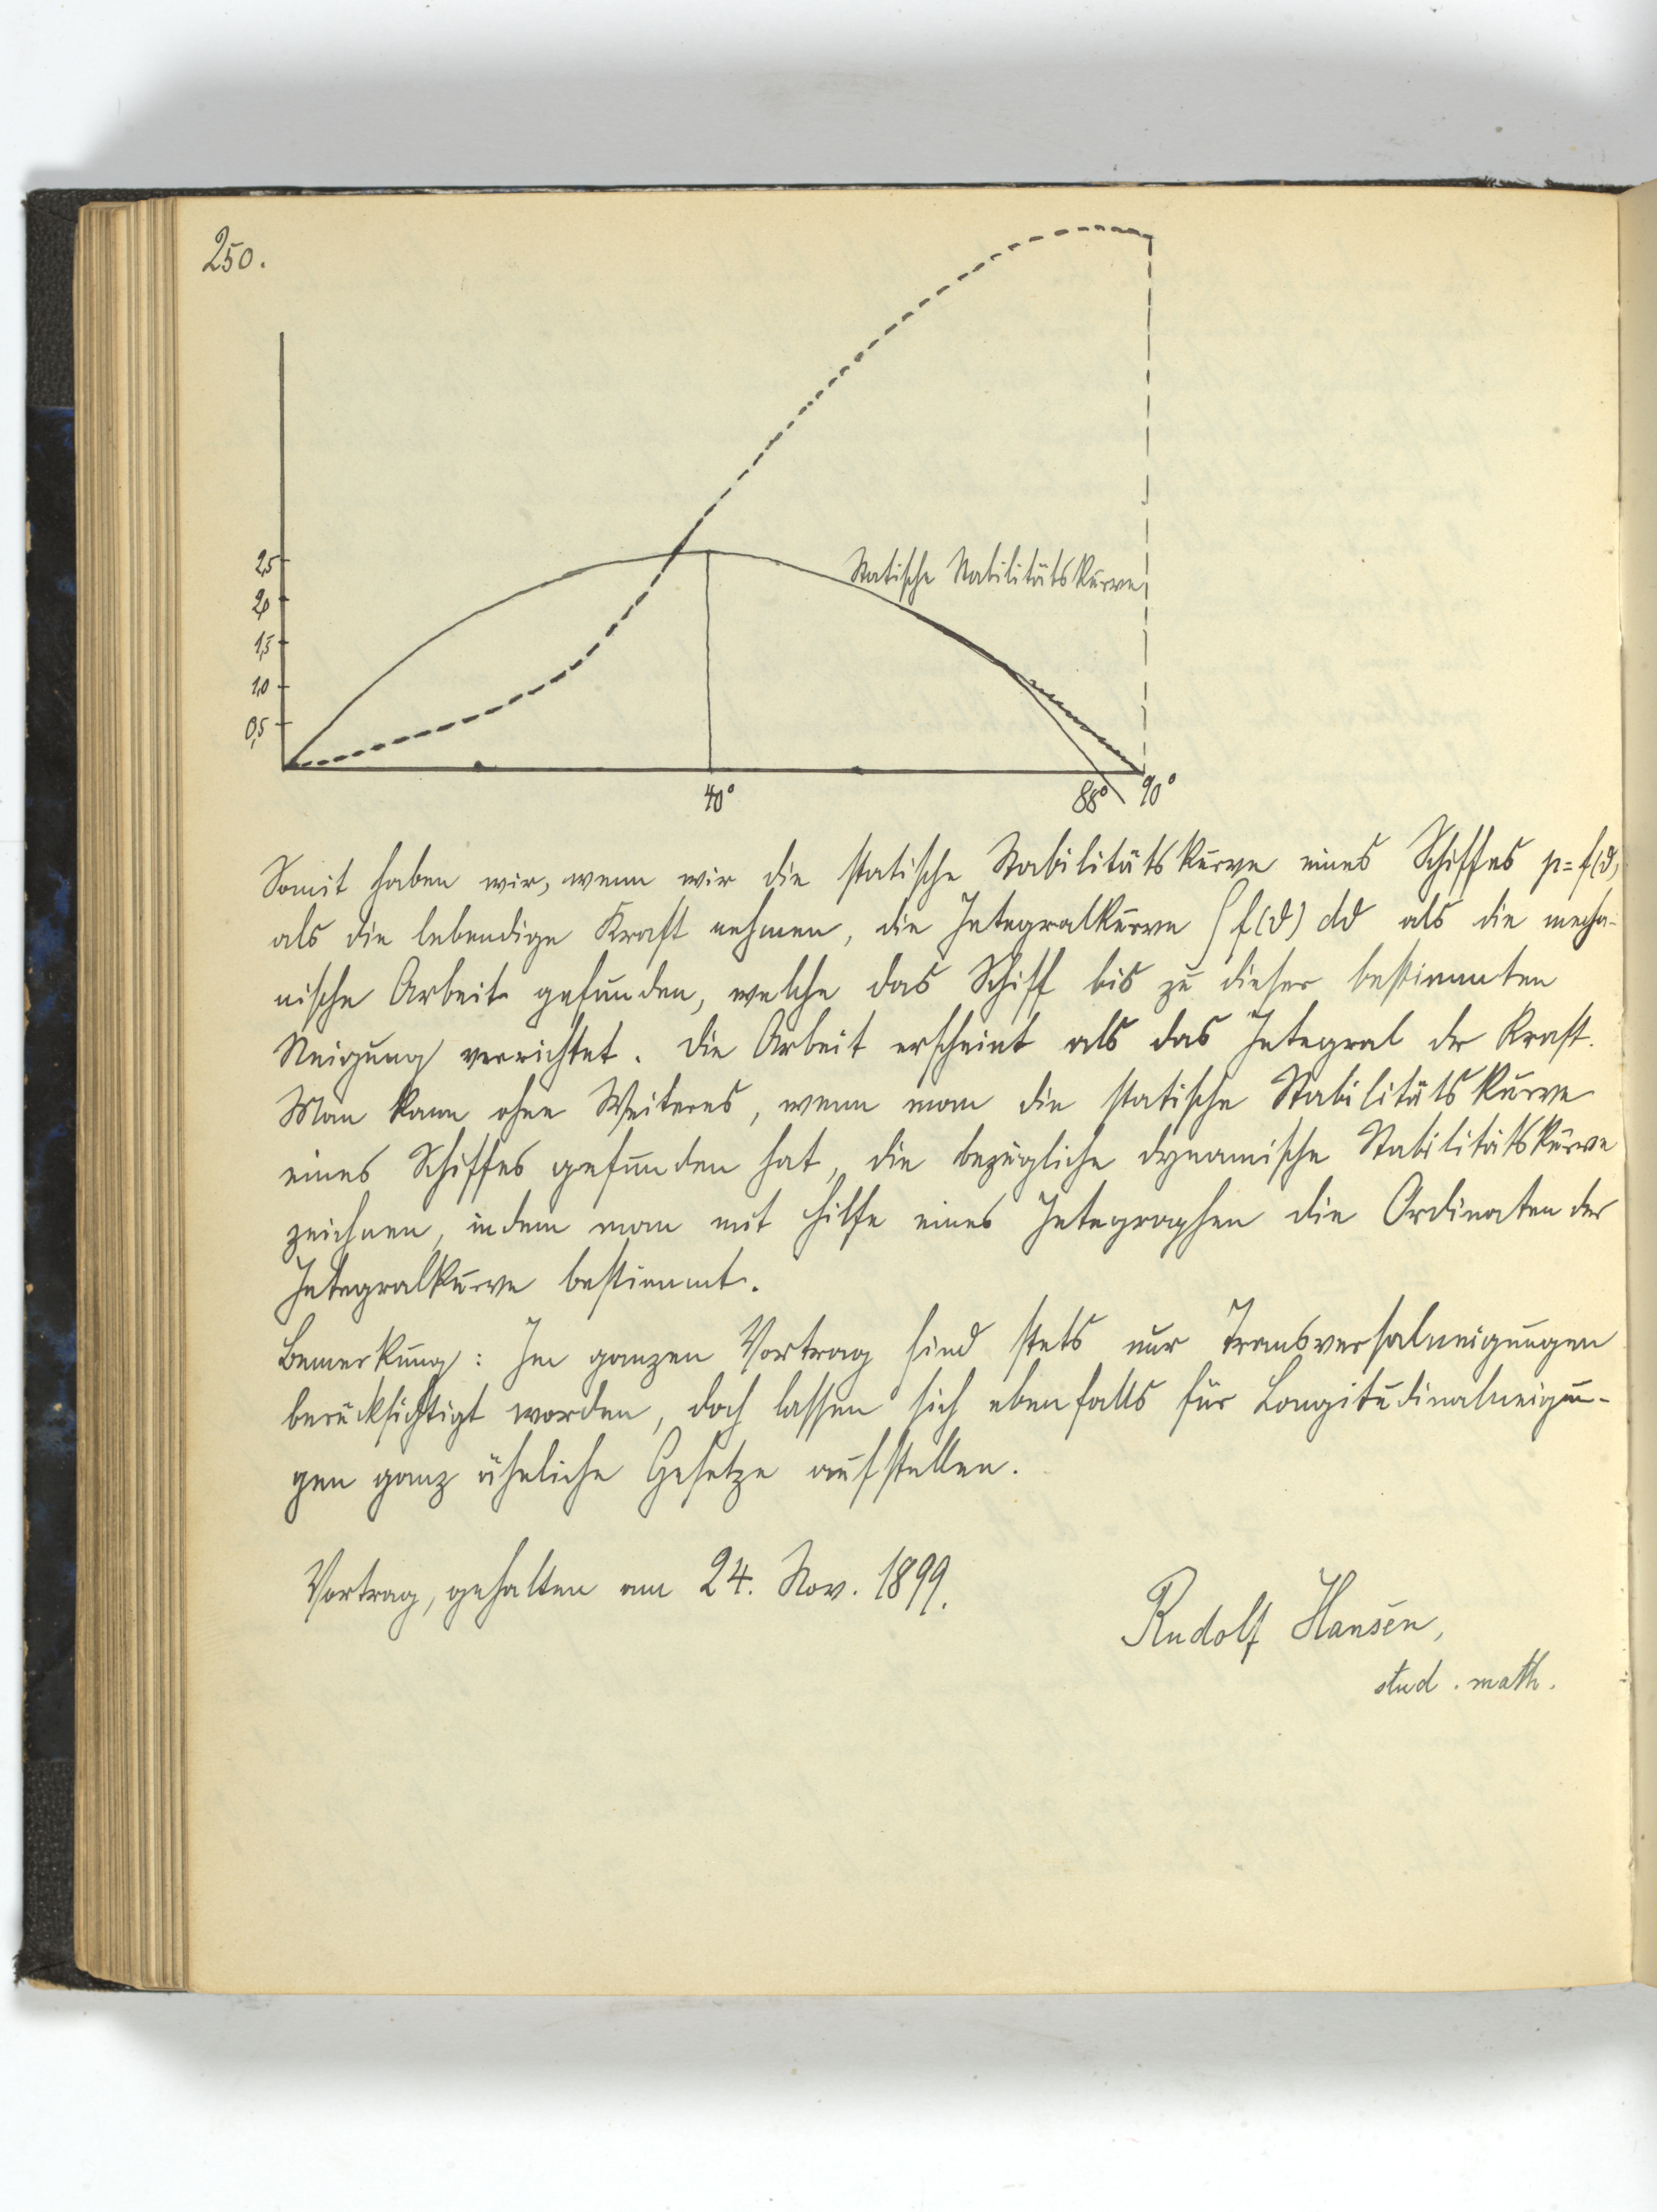 250.
2,5
2,0
1,5
1,0
0,5
Statische Stabilitätskurve
40°
88°
90°
Somit haben wir, wenn wir die statische Stabilitätskurve eines Schiffes p = f(ϑ)
als die lebendige Kraft nehmen, die Integralkurve ∫ f(ϑ) dϑ als die mecha-
nische Arbeit gefunden, welche das Schiff bis zu dieser bestimmten
Neigung verrichtet. Die Arbeit erscheint als das Integral der Kraft.
Man kann ohne Weiteres, wenn man die statische Stabilitätskurve
eines Schiffes gefunden hat, die bezügliche dynamische Stabilitätskurve
zeichnen, indem man mit Hilfe eines Integraphen die Ordinaten der
Integralkurve bestimmt.
Bemerkung: Im ganzen Vortrag sind stets nur Transversalneigungen
berücksichtigt worden, doch lassen sich ebenfalls für Longitudinalneigun-
gen ganz ähnliche Gesetze aufstellen.
Vortrag, gehalten am 24. Nov. 1899.
Rudolf Hansen,
stud. math.